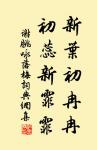 新葉初冉冉
初蕊新霏霏
謝朓詠落梅詞典網集